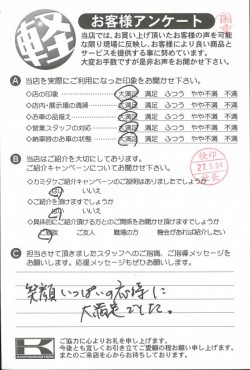 軽
お客様アンケート
当店では、お買い上げ頂いたお客様の声を可能
な限り現場に反映し、お客様により良い商品と
サービスを提供する事に努めています。
大変お手数ですが是非お声をお聞かせ下さい。
A 当店を実際にご利用になった印象をお聞かせ下さい。
◇店の印象 大満足 満足 ふつう やや不満 不満
◇店内・展示場の清掃 大満足 満足 ふつう やや不満 不満
◇お車の品揃え 大満足 満足 ふつう やや不満 不満
◇営業スタッフの対応 大満足 満足 ふつう やや不満 不満
◇納車時のお車の状態 大満足 満足 ふつう やや不満 不満
B 当店はご紹介を大切にしております。
ご紹介キャンペーンについてお聞かせ下さい。
◇カミタケご紹介キャンペーンのご説明はありましたでしょうか
はい いいえ
◇ご紹介を頂けますでしょうか
はい いいえ
◇具体的にご紹介頂ける方とのご関係をお聞かせ頂けますでしょうか
ご友人 職場の方 機会があれば紹介したい
検印
27.3.04
C 担当させて頂きましたスタッフへのご指摘、ご指導メッセージを
お願いします。応援メッセージもぜひお願いします。
笑顔いっぱいの応待に
大満足でした。
K
ご協力に心よりお礼を申し上げます。
今後とも宜しくお引き立てご愛顧の程お願い申し上げます。
またのご来店を心からお待ちしております。